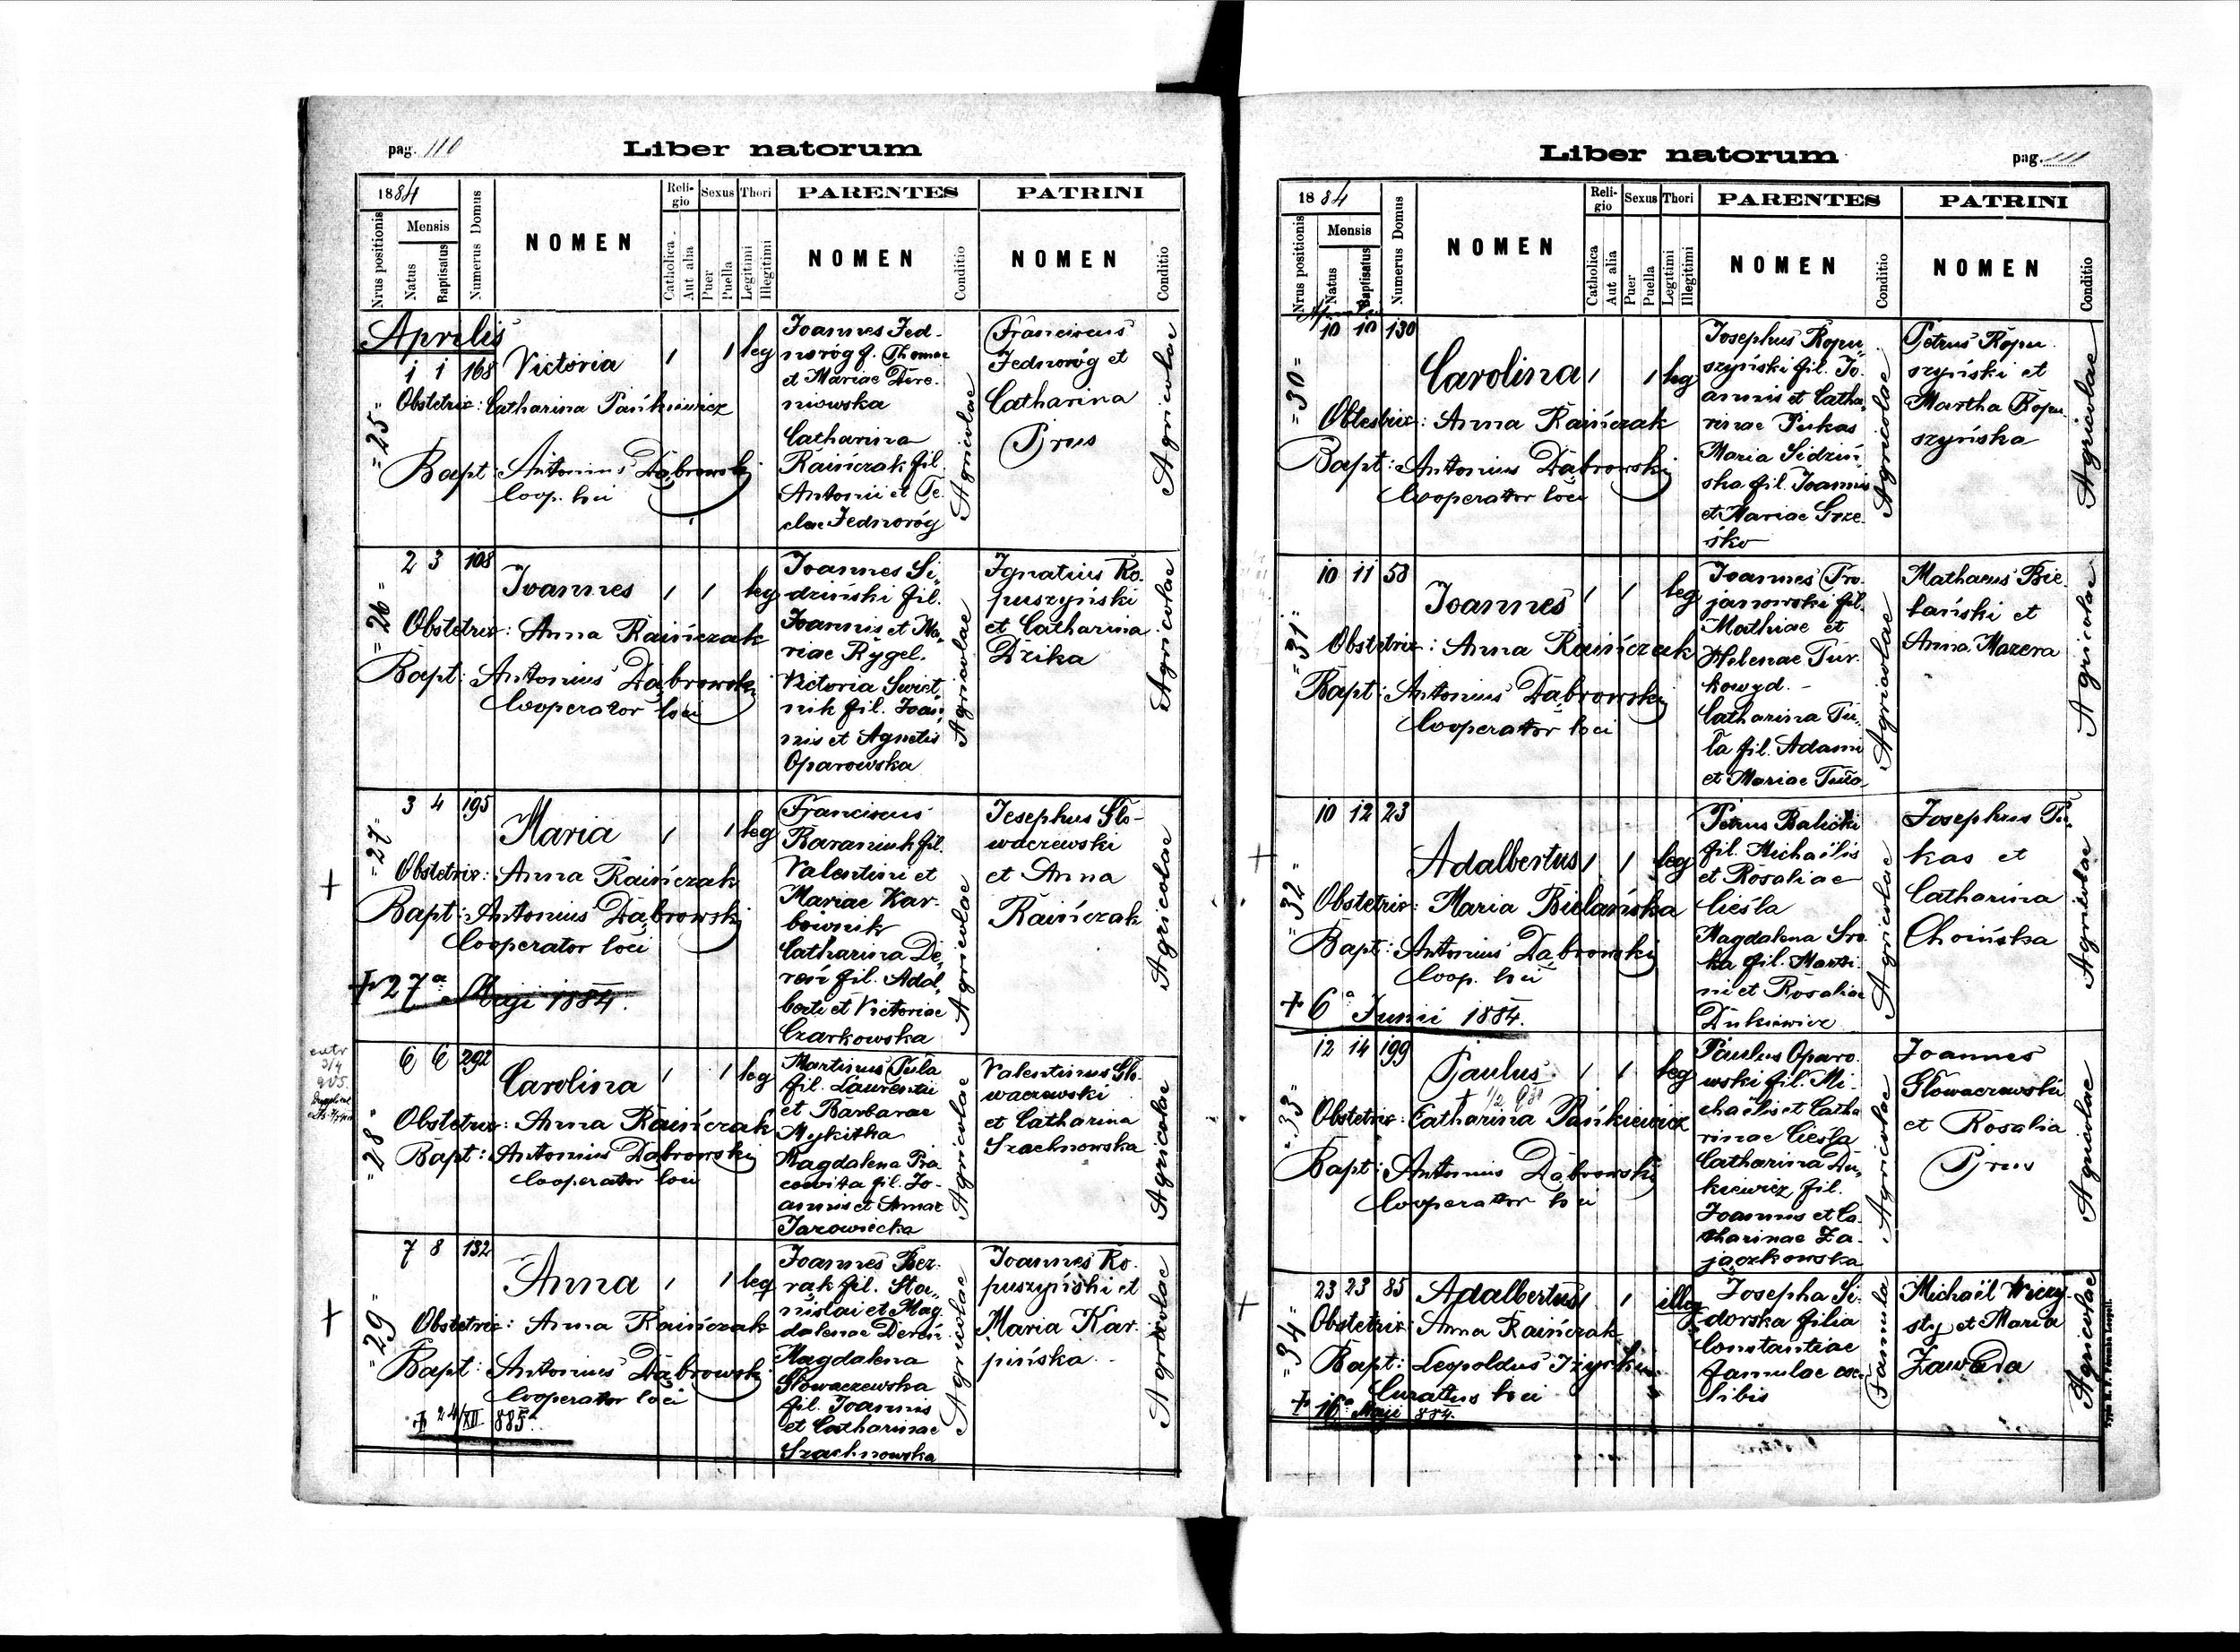 pag. 110
Liber natorum
1884
Nrus positionis
Mensis
Natus
Baptisatus
Numerus Domus
NOMEN
Religio
Catholica
Aut alia
Sexus
Puer
Puella
Thori
Legitimi
Illegitimi
PARENTES
NOMEN
Conditio
PATRINI
NOMEN
Conditio
Aprilis
=25=
1 1 168 Victoria 1 1 leg
Obstetrix: Catharina Pańkiewicz
Bapt: Antonius Dąbrowski
Coop. loci
Joannes Jed-
noróg f. Thomae
et Mariae Dere-
niowska
Catharina
Raińczak fil.
Antonii et Te-
clae Jednoróg
Agricolae
Franciscus
Jednoróg et
Catharina
Prus
Agricolae
=26=
2 3 108
Joannes 1 1 leg
Obstetrix: Anna Raińczak
Bapt: Antonius Dąbrowski
Cooperator loci
Joannes Si-
dziński fil.
Joannis et Ma-
riae Rygel.
Victoria Swiet-
nik fil. Joan-
nis et Agnetis
Oparowska
Agricolae
Ignatius Ko-
puszyński
et Catharina
Dzika
Agricolae
=27=
3 4 195
Maria 1 1 leg
Obstetrix: Anna Raińczak
Bapt: Antonius Dąbrowski
Cooperator loci
+ 27a Maji 1884.
Franciscus
Baraniuk fil.
Valentini et
Mariae Kar-
bownik
Catharina De-
reń fil. Adal-
berti et Victoriae
Czarkowska
Agricolae
Josephus Sło-
waczewski
et Anna
Raińczak
Agricolae
=28=
6 6 292
Carolina 1 1 leg
Obstetrix: Anna Raińczak
Bapt: Antonius Dąbrowski
Cooperator loci
Martinus Tuła
fil. Laurentii
et Barbarae
Mykitka
Magdalena Pra-
cowita fil. Jo-
annis et Annae
Jarowiecka
Agricolae
Valentinus Sło-
waczewski
et Catharina
Szachnowska
Agricolae
=29=
7 8 132
Anna 1 1 leg
Obstetrix: Anna Raińczak
Bapt: Antonius Dąbrowski
Cooperator loci
+ 24/XII 885.
Joannes Bez-
rak fil. Sta-
nislai et Mag-
dalenae Dereń
Magdalena
Słowaczewska
fil. Joannis
et Catharinae
Szachnowska
Agricolae
Joannes Ko-
puszyński et
Maria Kar-
pińska
Agricolae
Liber natorum
pag. 111
1884
Nrus positionis
Mensis
Natus
Baptisatus
Numerus Domus
NOMEN
Religio
Catholica
Aut alia
Sexus
Puer
Puella
Thori
Legitimi
Illegitimi
PARENTES
NOMEN
Conditio
PATRINI
NOMEN
Conditio
Aprilis
=30=
10 10 130
Carolina 1 1 leg
Obstetrix: Anna Raińczak
Bapt: Antonius Dąbrowski
Cooperator loci
Josephus Kopu-
szyński fil. Jo-
annis et Catha-
rinae Pukas
Maria Sidziń-
ska fil. Joannis
et Mariae Grze-
śko
Agricolae
Petrus Kopu-
szyński et
Martha Kopu-
szyńska
Agricolae
=31=
10 11 58
Joannes 1 1 leg
Obstetrix: Anna Raińczak
Bapt: Antonius Dąbrowski
Cooperator loci
Joannes Tro-
janowski fil.
Mathiae et
Helenae Tur-
kowyd.
Catharina Tu-
ła fil. Adami
et Mariae Tuła
Agricolae
Mathaeus Bie-
łański et
Anna Mazera
Agricolae
=32=
10 12 23
Adalbertus 1 1 leg
Obstetrix: Maria Bielańska
Bapt: Antonius Dąbrowski
Coop. loci
+ 6a Junii 1884.
Petrus Balicki
fil. Michaëlis
et Rosaliae
Cieśla
Magdalena Sro-
ka fil. Marti-
ni et Rosaliae
Dukiewicz
Agricolae
Josephus Pu-
kas et
Catharina
Choińska
Agricolae
=33=
12 14 199
Paulus 1 1 leg
Obstetrix: Catharina Pańkiewicz
Bapt: Antonius Dąbrowski
Cooperator loci
Paulus Oparo-
wski fil. Mi-
chaëlis et Catha-
rinae Cieśla
Catharina Du-
kiewicz fil.
Joannis et Ca-
tharinae Za-
jączkowska
Agricolae
Joannes
Słowaczewski
et Rosalia
Prus
Agricolae
=34=
23 23 85 Adalbertus 1 1 illeg
Obstetrix: Anna Raińczak
Bapt: Leopoldus
Curatus loci
+ 16a Maji 884.
Josepha Si-
dorska filia
Constantiae
famulae coe-
libis
Famula
Michaël Wieczy-
sty et Maria
Zawada
Agricolae